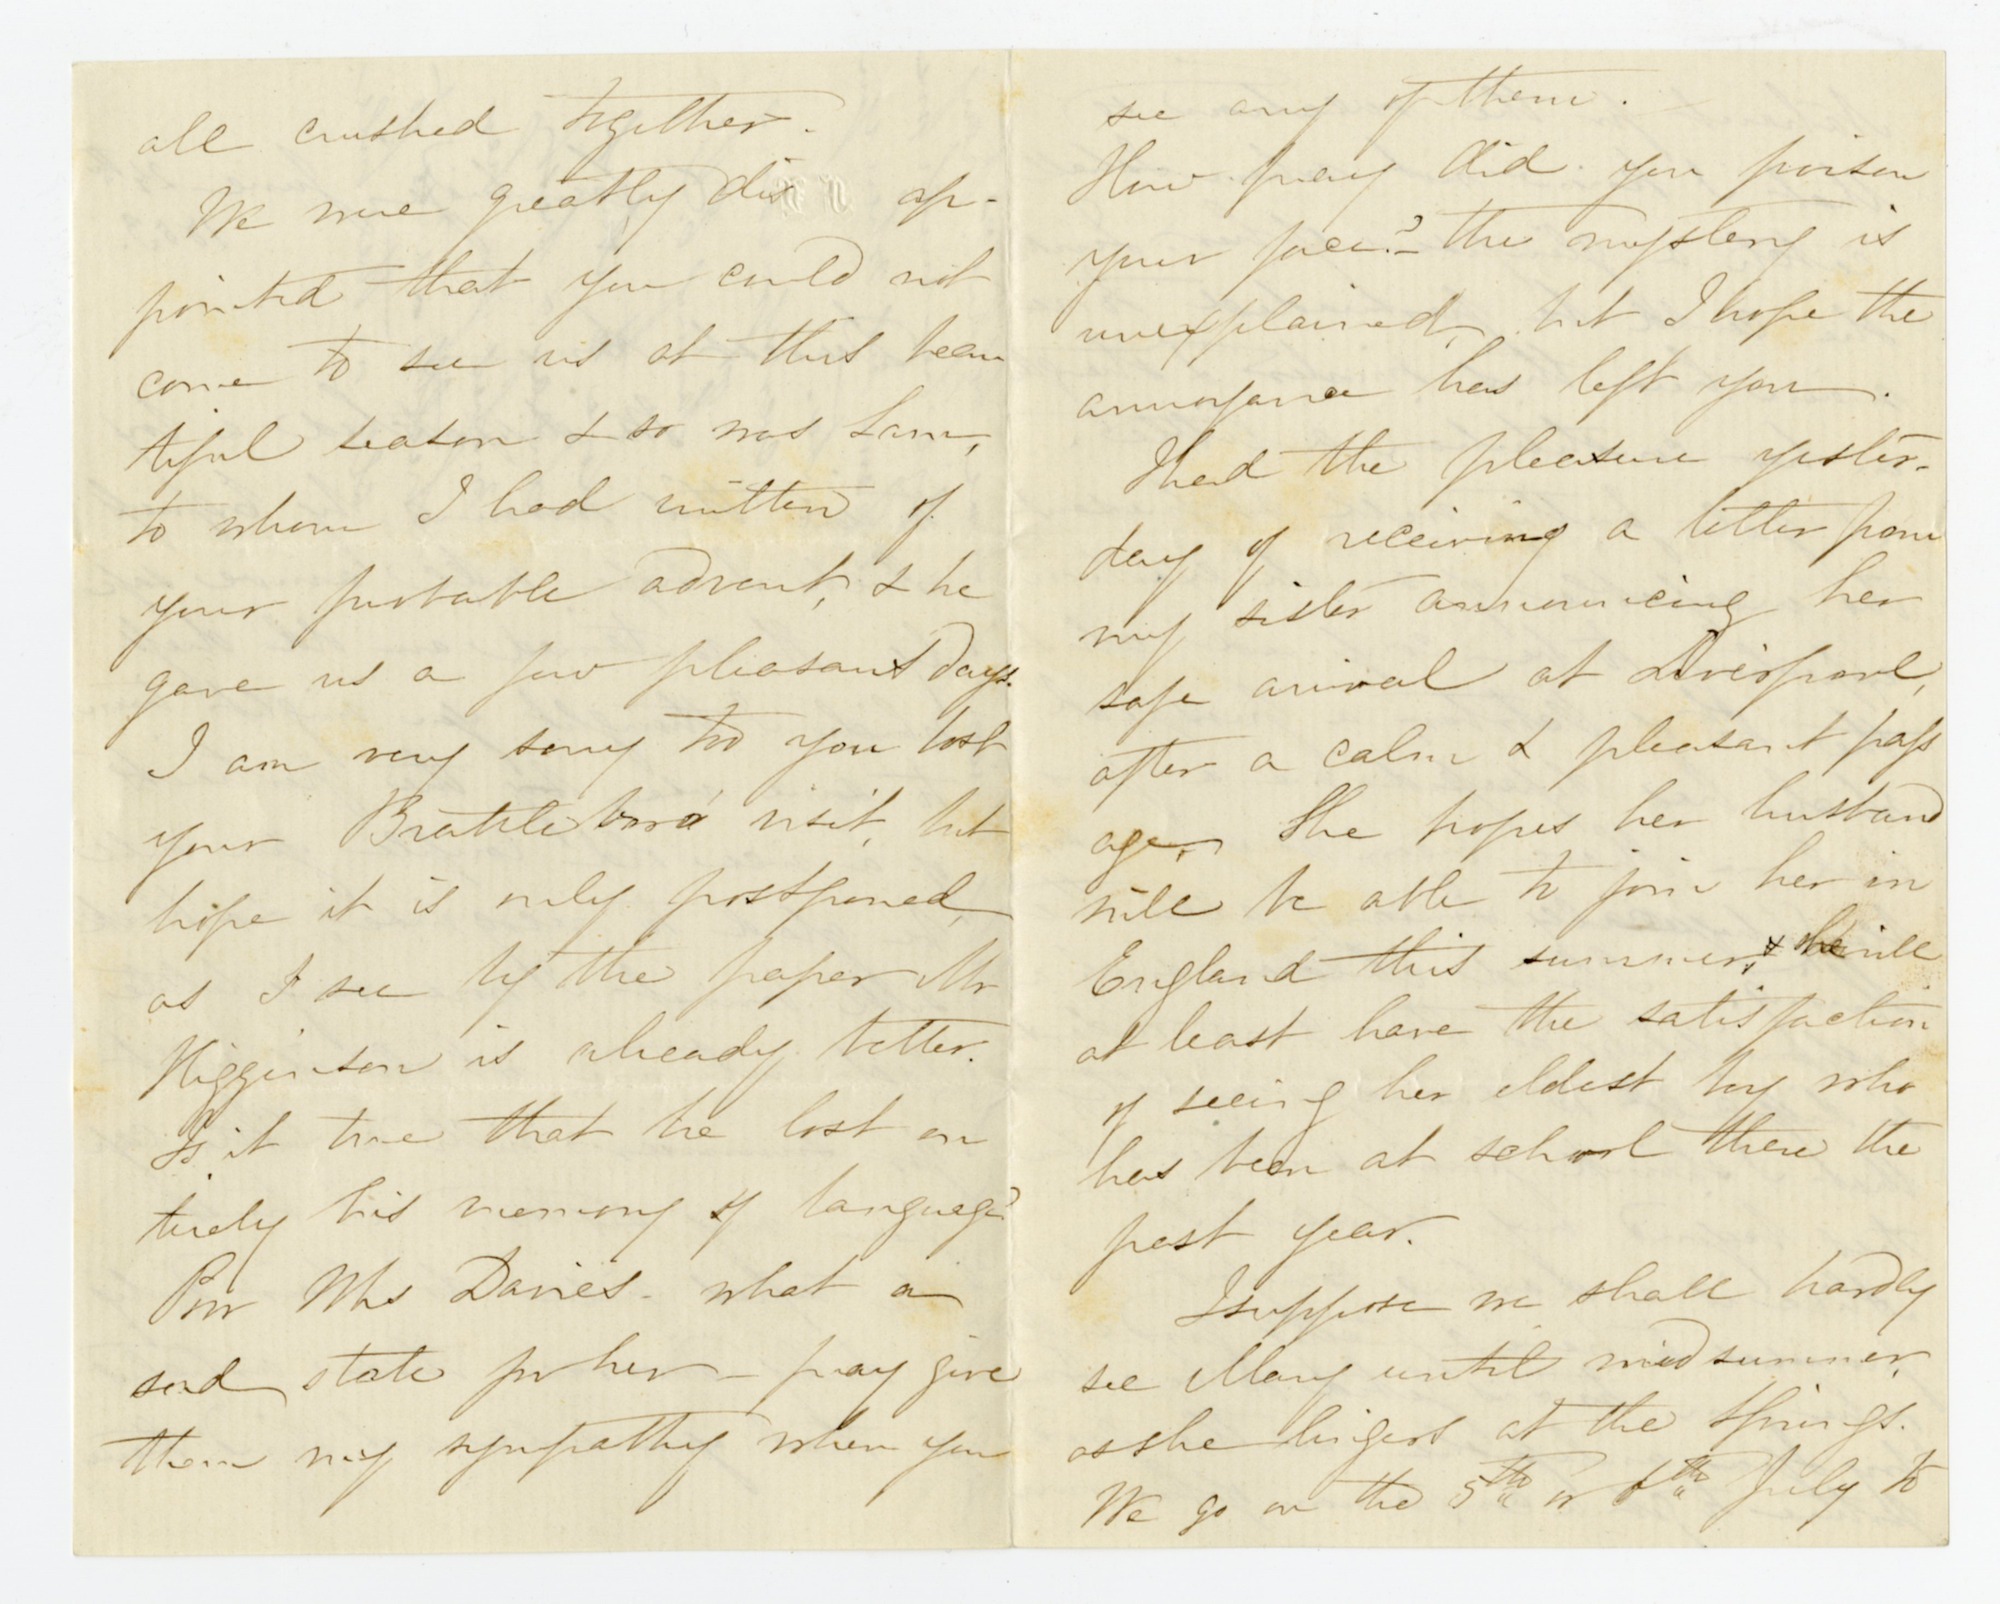 all crushed together.
We were greatly dis ap-
pointed that you could not
come to see us at this beau
tiful season & so was Sam,
to whom I had written of
your probable advent, & he
gave us a few pleasant days.
I am very sorry too you lost
your Brattleboro' visit, but
hope it is only postponed,
as I see by the paper Mr
Higginson is already better.
Is it true that he lost en
tirely his memory of language?
Poor Mrs Davies - what a
sad state for her - pray give
them my sympathy when you
see any of them.
How pray did you poison
your face? - the mystery is
unexplained, but I hope the
annoyance has left you.
I had the pleasure yester-
day of receiving a letter from
my sister announcing her
safe arrival at Liverpool,
after a calm & pleasant pass
age. She hopes her husband
will be able to join her in
England this summer, & she will
at least have the satisfaction
of seeing her eldest boy who
has been at school there the
past year.
I suppose we shall hardly
see Mary until midsummer,
as she lingers at the Springs.
We go on the 5th or 6th July to